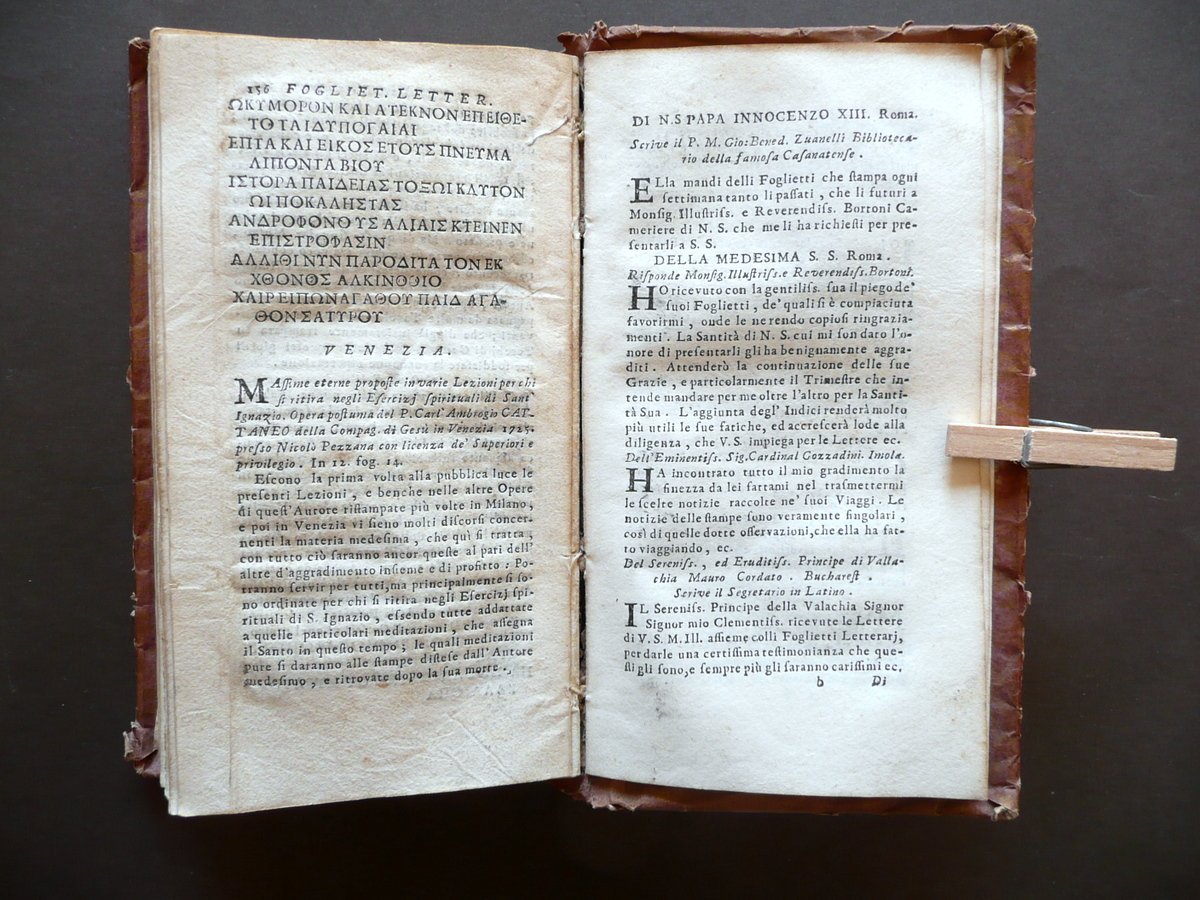 156 FOGLIET. LETTER.
ΩΚΥΜΟΡΟΝ ΚΑΙ ΑΤΕΚΝΟΝ ΕΠΕΙΘΕ-
ΤΟ ΤΑΙΔΥΠΟΓΑΙΑΙ
ΕΠΤΑ ΚΑΙ ΕΙΚΟΣ ΕΤΟΥΣ ΠΝΕΥΜΑ
ΛΙΠΟΝΤΑ ΒΙΟΥ
ΙΣΤΟΡΑ ΠΑΙΔΕΙΑΣ ΤΟΞΩΙ ΚΛΥΤΟΝ
ΩΙ ΠΟΚΑΛΗΣΤΑΣ
ΑΝΔΡΟΦΟΝΘΥΣ ΑΛΙΑΙΣ ΚΤΕΙΝΕΝ
ΕΠΙΣΤΡΟΦΑΣΙΝ
ΑΛΛΙΘΙ ΝΥΝ ΠΑΡΟΔΙΤΑ ΤΟΝ ΕΚ
ΧΘΟΝΘΣ ΑΛΚΙΝΘΘΙΟ
ΧΑΙΡΕΙΠΩΝΑΓΑΘΟΥ ΠΑΙΔ ΑΓΑ-
ΘΟΝΣΑΤΥΡΟΥ
VENEZIA.
MAſſime eterne propoſte in varie Lezioni per chi
ſi ritira negli Eſercizj ſpirituali di Sant'
Ignazio. Opera poſtuma del P. Carl' Ambrogio CAT-
TANEO della Compag. di Gesù in Venezia 1725.
preſſo Nicolò Pezzana con licenza de' Superiori e
privilegio. In 12. fog. 14.
Eſcono la prima volta alla pubblica luce le
preſenti Lezioni, e benche nelle altre Opere
di queſt'Autore riſtampate più volte in Milano,
e poi in Venezia vi ſieno molti diſcorſi concer-
nenti la materia medeſima, che quì ſi tratta;
con tutto ciò ſaranno ancor queſte al pari dell'
altre d'aggradimento inſieme e di profitto: Po-
tranno ſervir per tutti, ma principalmente ſi ſo-
no ordinate per chi ſi ritira negli Eſercizj ſpi-
rituali di S. Ignazio, eſſendo tutte addattate
a quelle particolari meditazioni, che aſſegna
il Santo in queſto tempo; le quali meditazioni
pure ſi daranno alle ſtampe diſteſe dall' Autore
medeſimo, e ritrovate dopo la ſua morte.
DI N.S PAPA INNOCENZO XIII. Roma.
Scrive il P. M. Gio: Bened. Zuanelli Biblioteca-
rio della famoſa Caſanatenſe.
ELla mandi delli Foglietti che ſtampa ogni
ſettimana tanto li paſſati, che li futuri a
Monſig. Illuſtriſs. e Reverendiſs. Bortoni Ca-
meriere di N. S. che me li ha richieſti per pre-
ſentarli a S. S.
DELLA MEDESIMA S. S. Roma.
Riſponde Monſig. Illuſtriſs. e Reverendiſs. Bortoni.
HO ricevuto con la gentiliſs. ſua il piego de'
ſuoi Foglietti, de' quali ſi è compiaciuta
favorirmi, onde le ne rendo copioſi ringrazia-
menti. La Santità di N. S. cui mi ſon dato l'o-
nore di preſentarli gli ha benignamente aggra-
diti. Attenderò la continuazione delle ſue
Grazie, e particolarmente il Trimeſtre che in-
tende mandare per me oltre l'altro per la Santi-
tà Sua. L'aggiunta degl' Indici renderà molto
più utili le ſue fatiche, ed accreſcerà lode alla
diligenza, che V. S. impiega per le Lettere ec.
Dell'Eminentiſs. Sig. Cardinal Gozzadini. Imola.
HA incontrato tutto il mio gradimento la
finezza da lei fattami nel traſmettermi
le ſcelte notizie raccolte ne' ſuoi Viaggi. Le
notizie delle ſtampe ſono veramente ſingolari,
così di quelle dotte oſſervazioni, che ella ha fat-
to viaggiando, ec.
Del Sereniſs., ed Eruditiſs. Principe di Valla-
chia Mauro Cordato. Buchareſt.
Scrive il Segretario in Latino.
IL Sereniſs. Principe della Valachia Signor
Signor mio Clementiſs. ricevute le Lettere
di V. S. M. Ill. aſſieme colli Foglietti Letterarj,
per darle una certiſſima teſtimonianza che que-
ſti gli ſono, e ſempre più gli ſaranno cariſſimi ec.
b Di